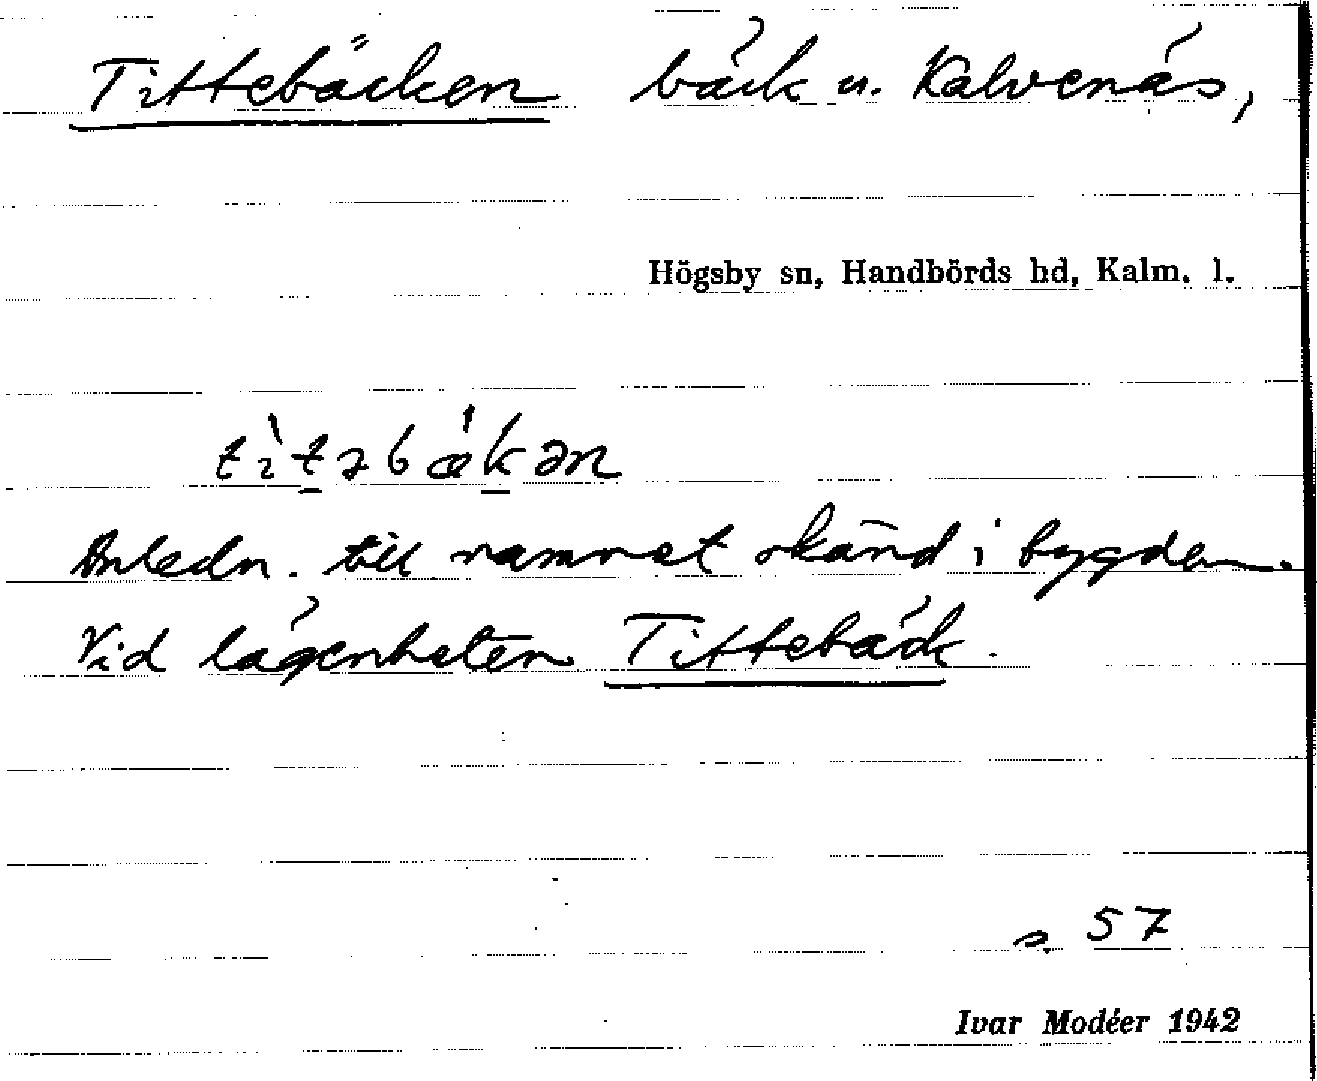 Tittebäcken bäck u. Kalvenäs,
Högsby sn, Handbörds hd, Kalm. l.
tìt̠əbǽk̠ən
Anledn. till namnet okänd i bygden.
Vid lägenheten Tittebäck.
s. 57
Ivar Modéer 1942